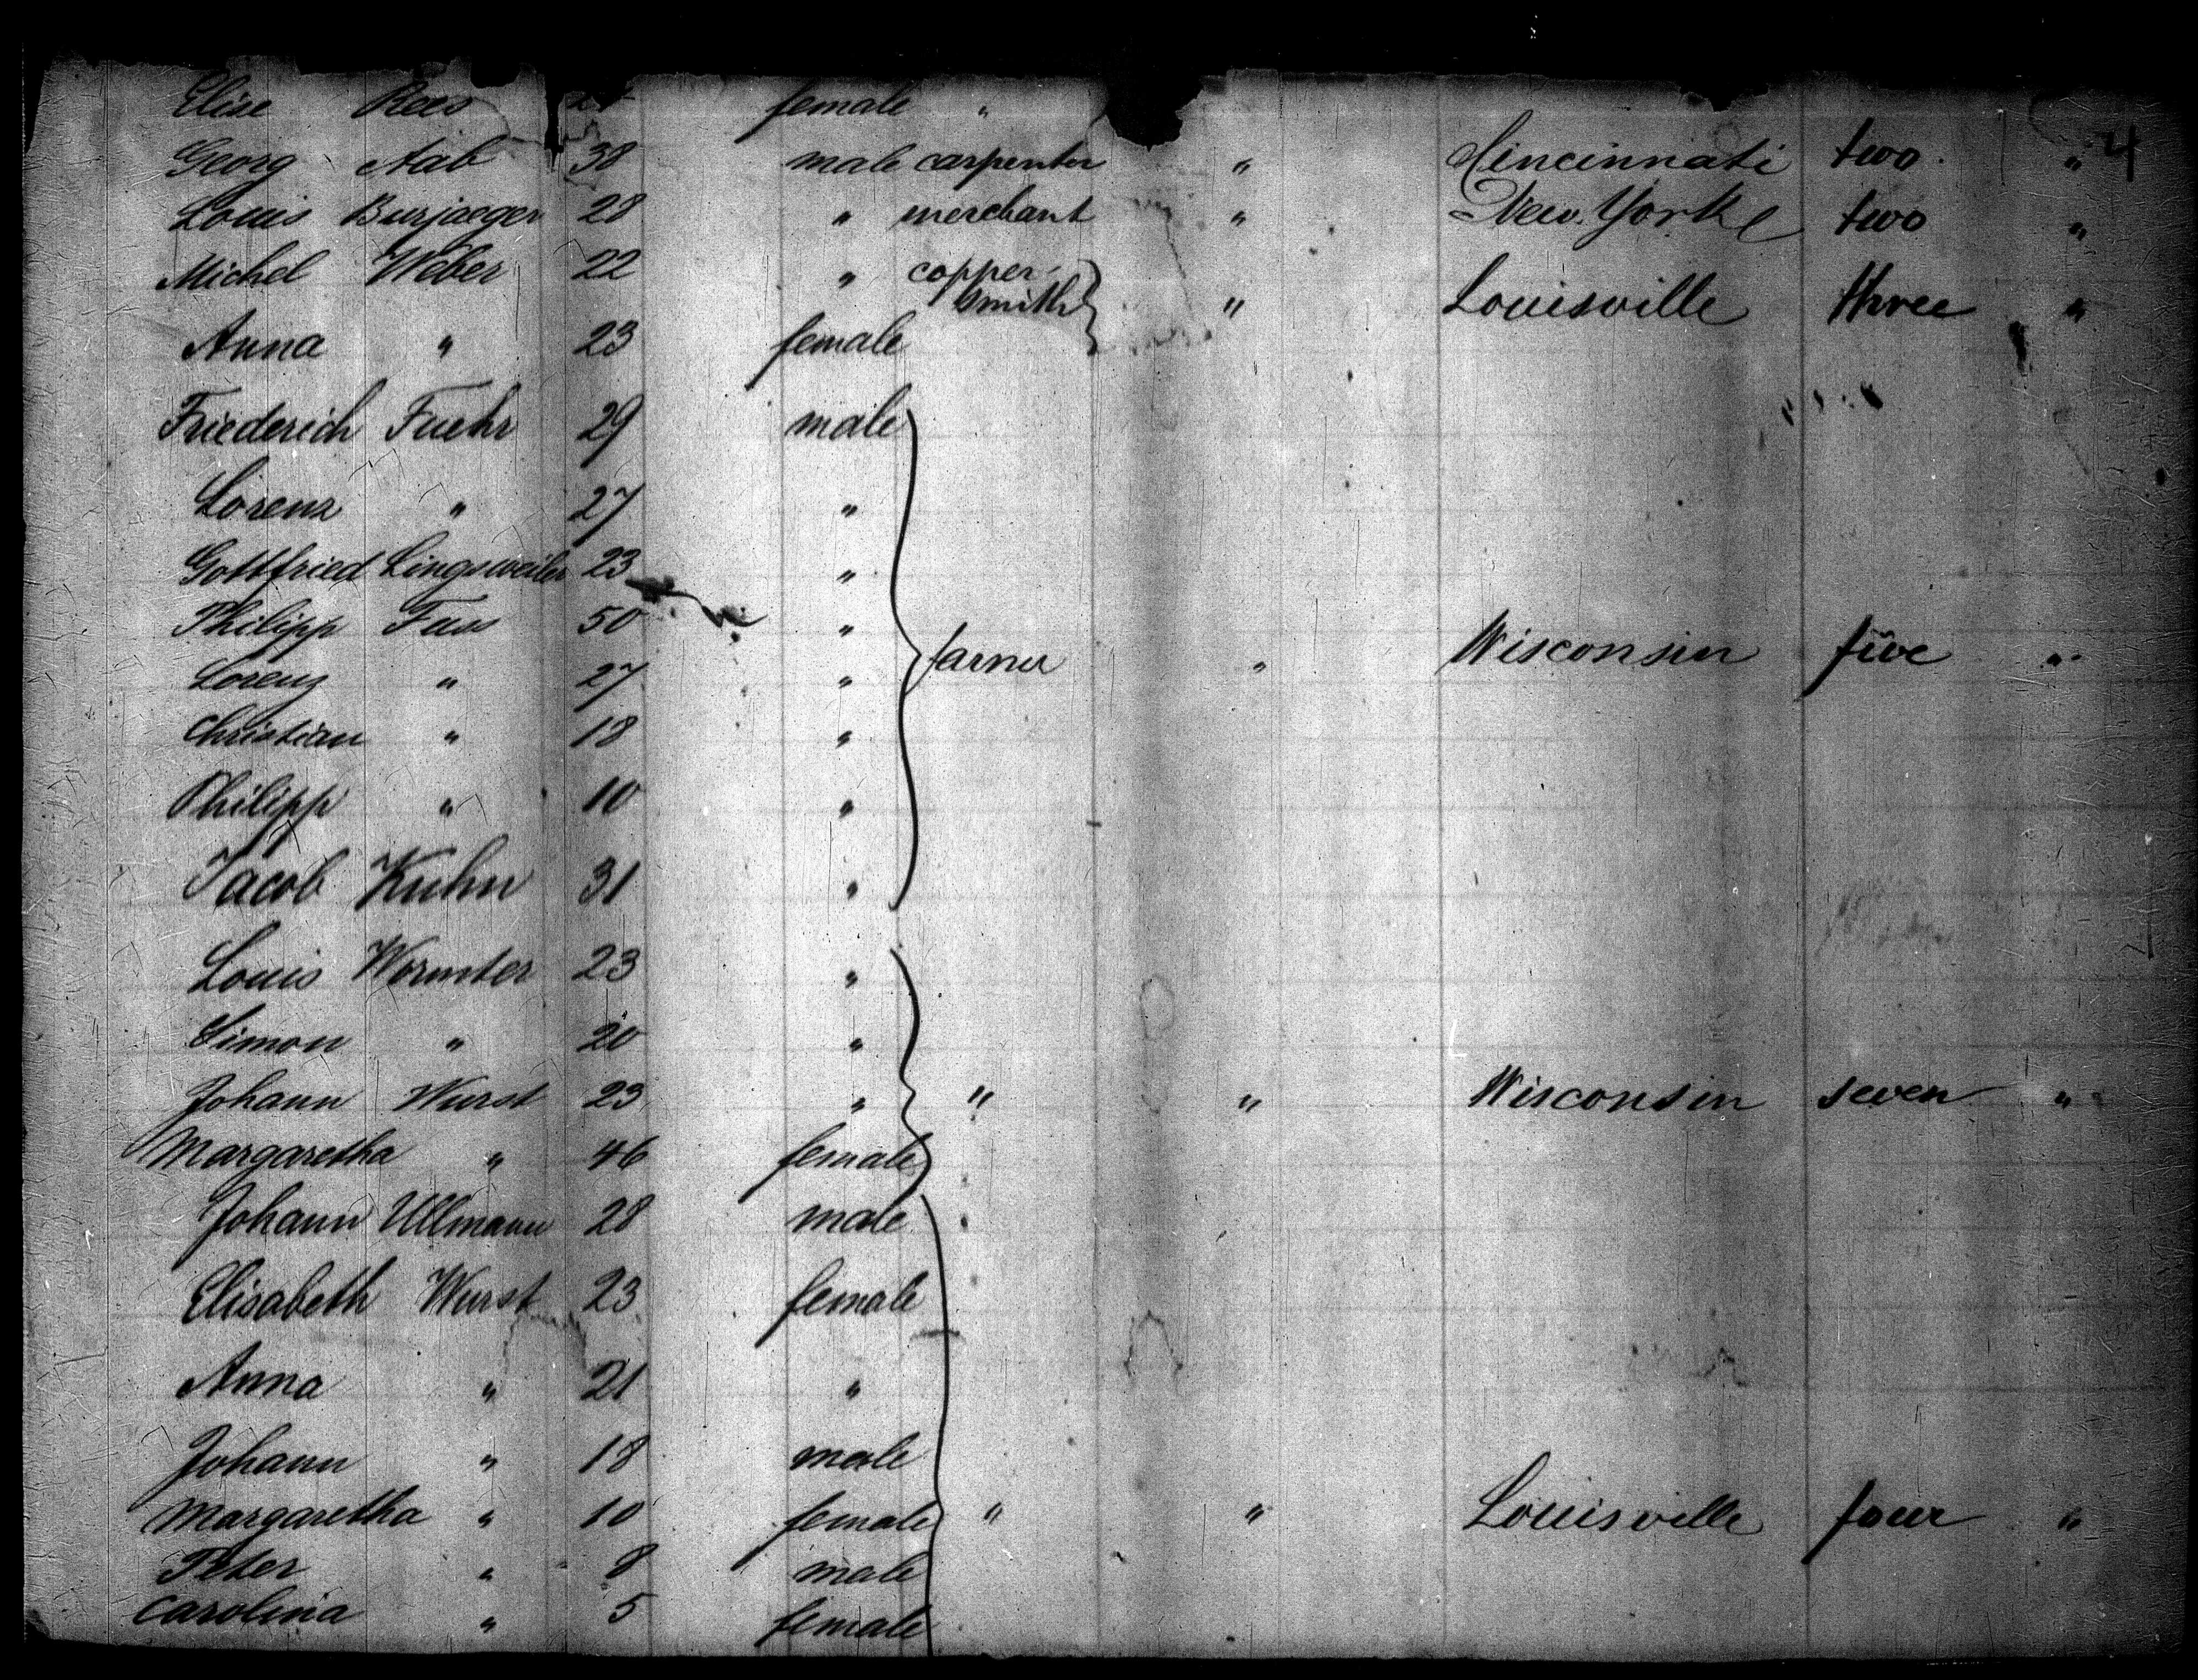 Elise Rees female "
4
Georg Aab 38 male carpenter " Cincinnati two "
Louis Burjaeger 28 " merchant " New York two "
Michel Weber 22 " copper-
smith " Louisville three "
Anna " 23 female
Friederich Fuehr 29 male
Lorenz " 27 "
Gottfried Lingsweiler 23 "
Philipp Fuss 50 "
farmer " Wisconsin five "
Lorenz " 27 "
Christian " 18 "
Philipp " 10 "
Jacob Kuhn 31 "
Louis Wormster 23 "
Simon " 20 "
Johann Wurst 23 " " " Wisconsin seven "
Margaretha " 46 female
Johann Ullmann 28 male
Elisabeth Wurst 23 female
Anna " 21 "
Johann " 18 male
Margaretha " 10 female " " Louisville four "
Peter " 8 male
Carolina " 5 female